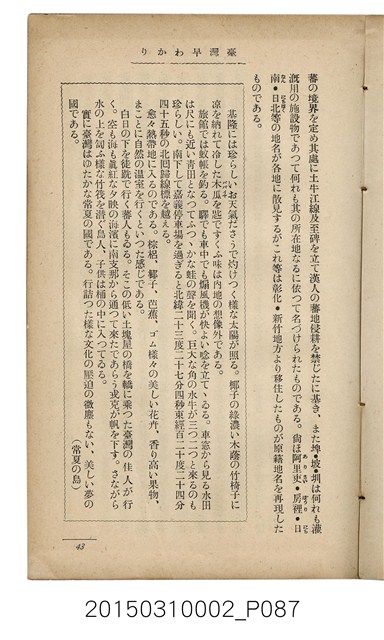 臺灣早わかり
蕃の境界を定め其處に土牛江線及至碑を立て漢人の蕃地侵耕を禁じたに基き、また埤•坡•圳は何れも灌
漑用の施設物であつて何れも其の所在地なるに依つて名づけられたものである。尙ほ阿里吏•房裡•日
南•日北等の地名が各地に散見するがこれ等は彰化•新竹地方より移住したものが原籍地名を再現した
ものである。
基隆には珍らしいお天氣ださうで灼けつく樣な太陽が照る。椰子の綠濃い木蔭の竹椅子に
凉を納れて冷した木瓜を匙ですくふ味は內地の想像外である。
旅館では蚊帳を釣る。驛でも車中でも煽風機が快よい唸を立てゝゐる。車窓から見る水田
は尺にも近い靑田となつてふつゝかな蛙の聲を聞く。巨大な角の水牛が三つ二つと來るのも
珍らしい。南下して嘉義停車場を過ぎると北緯二十三度二十七分四秒東經百二十度二十四分
四十五秒の北囘歸線標を越える。
愈々熱帶地に入るのである。棕梠、椰子、芭蕉、ゴム樣々の美しい花卉、香り高い果物、
まことに自然の溫室を行くといつた感じである。
白日の下を徒跣で行く蕃人もゐる。そこの低い土塊屋の橋を轎に乘つた臺灣の佳人が行
く。空も海も眞紅な夕映の海濱に南支那から通つて來たであらう戎克が帆を下す。さながら
水の上を匐ふ樣な竹筏を潜ぐ島人、子供は桶の中に入つてゐる。
實に臺灣はゆたかな常夏の國である。行詰つた樣な文化の壓迫の微塵もない、美しい夢の
國である。
（常夏の島）
43
20150310002_P087